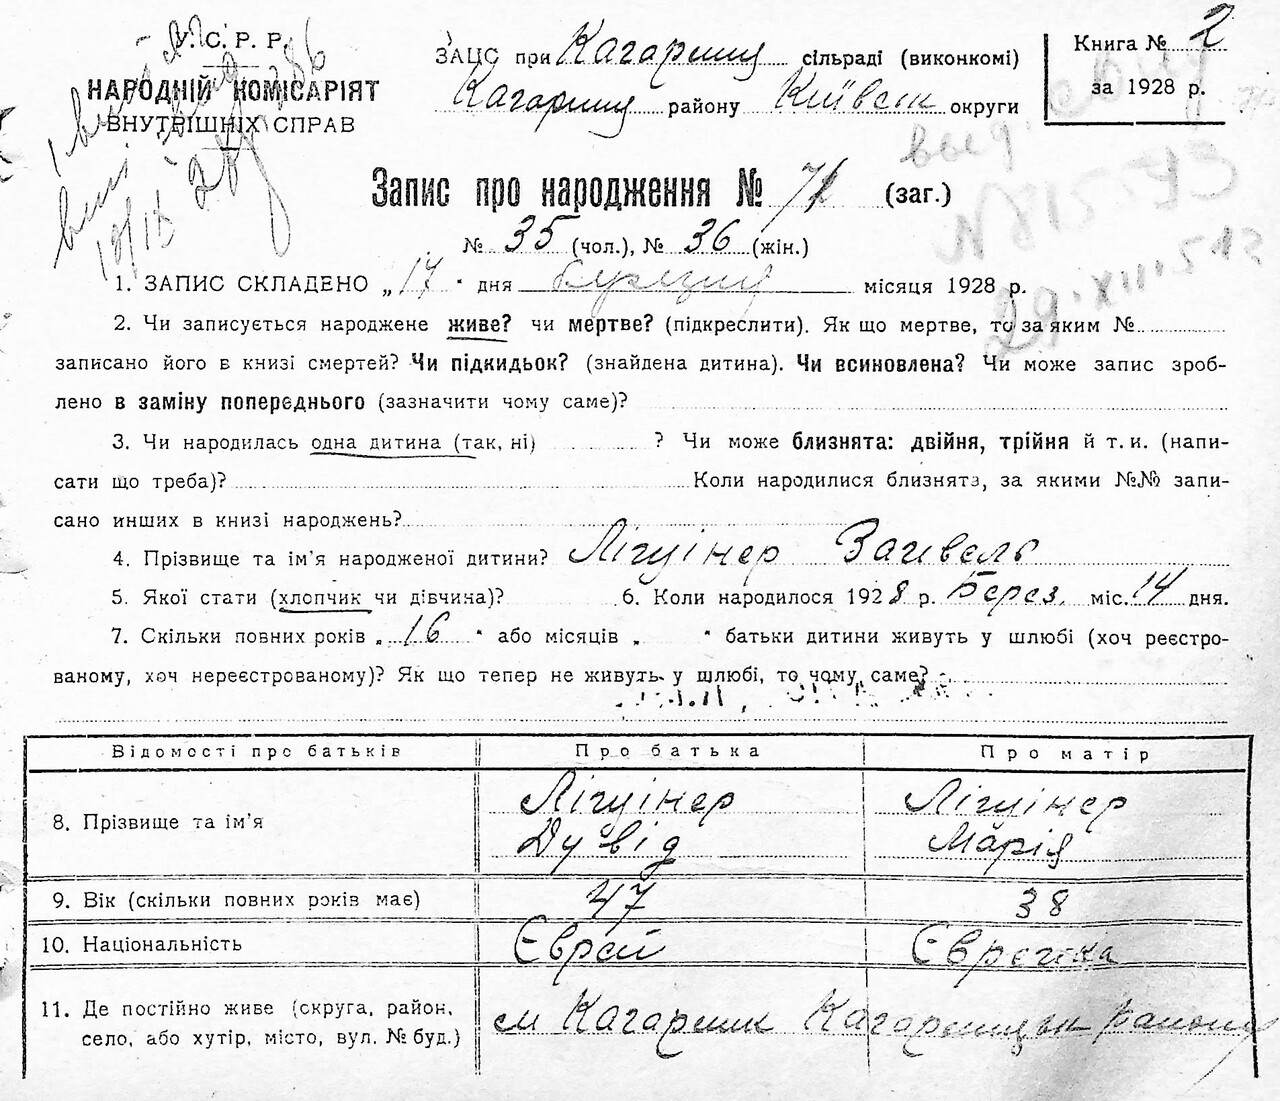 У. С. Р. Р.
НАРОДНІЙ КОМІСАРІЯТ
ВНУТРІШНІХ СПРАВ
ЗАЦС при Кагарлиц сільраді (виконкомі)
Кагарлиц району Київськ округи
Книга № 2
за 1928 р.
Запис про народження № 71 (заг.)
№ 35 (чол.), № 36 (жін.)
1. ЗАПИС СКЛАДЕНО „17" дня березня місяця 1928 р.
2. Чи записується народжене живе? чи мертве? (підкреслити). Як що мертве, то за яким №
записано його в книзі смертей? Чи підкидьок? (знайдена дитина). Чи всиновлена? Чи може запис зроб-
лено в заміну попереднього (зазначити чому саме)?
3. Чи народилась одна дитина (так, ні) ? Чи може близнята: двійня, трійня й т. и. (напи-
сати що треба)? Коли народилися близнята, за якими №№ запи-
сано инших в книзі народжень?
4. Прізвище та ім'я народженої дитини? Лігцінер Зайвель
5. Якої стати (хлопчик чи дівчина)? 6. Коли народилося 1928 р. Берез. міс. 14 дня.
7. Скільки повних років „16" або місяців „ " батьки дитини живуть у шлюбі (хоч реєстро-
ваному, хоч нереєстрованому)? Як що тепер не живуть у шлюбі, то чому саме?
Відомості про батьків Про батька Про матір
8. Прізвище та ім'я Лігцінер Дувід Лігцінер Марія
9. Вік (скільки повних років має) 47 38
10. Національність Єврей Єврейка
11. Де постійно живе (округа, район,
село, або хутір, місто, вул. № буд.) м Кагарлик Кагарлицьк району